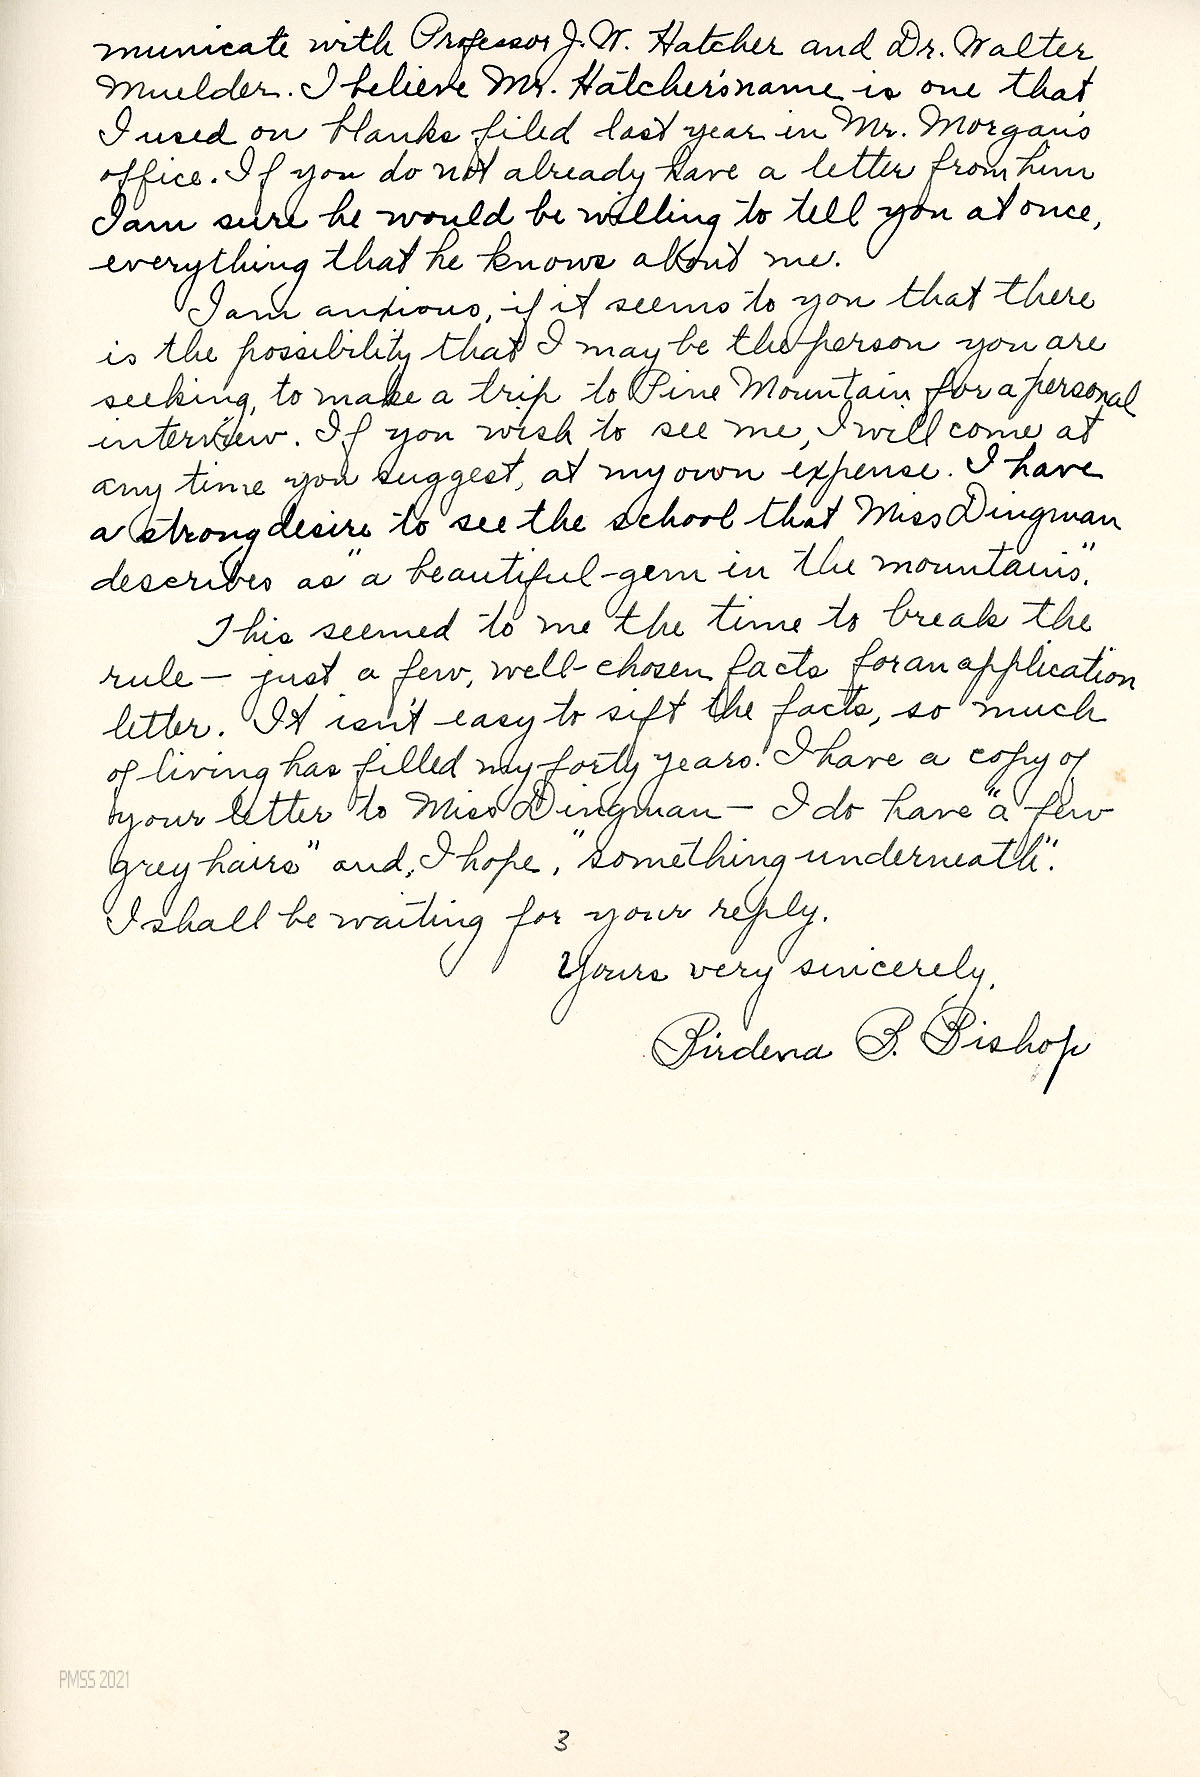 municate with Professor J. W. Hatcher and Dr. Walter
Muelder. I believe Mr. Hatcher's name is one that
I used on blanks filed last year in Mr. Morgan's
office. If you do not already have a letter from him
I am sure he would be willing to tell you at once,
everything that he knows about me.
I am anxious, if it seems to you that there
is the possibility that I may be the person you are
seeking, to make a trip to Pine Mountain for a personal
interview. If you wish to see me, I will come at
any time you suggest, at my own expense. I have
a strong desire to see the school that Miss Dingman
describes as "a beautiful-gem in the mountains".
This seemed to me the time to break the
rule — just a few, well-chosen facts for an application
letter. It isn't easy to sift the facts, so much
of living has filled my forty years! I have a copy of
your letter to Miss Dingman — I do have "a few
grey hairs" and, I hope, "something underneath".
I shall be waiting for your reply.
Yours very sincerely,
Birdena B. Bishop
PMSS 2021
3